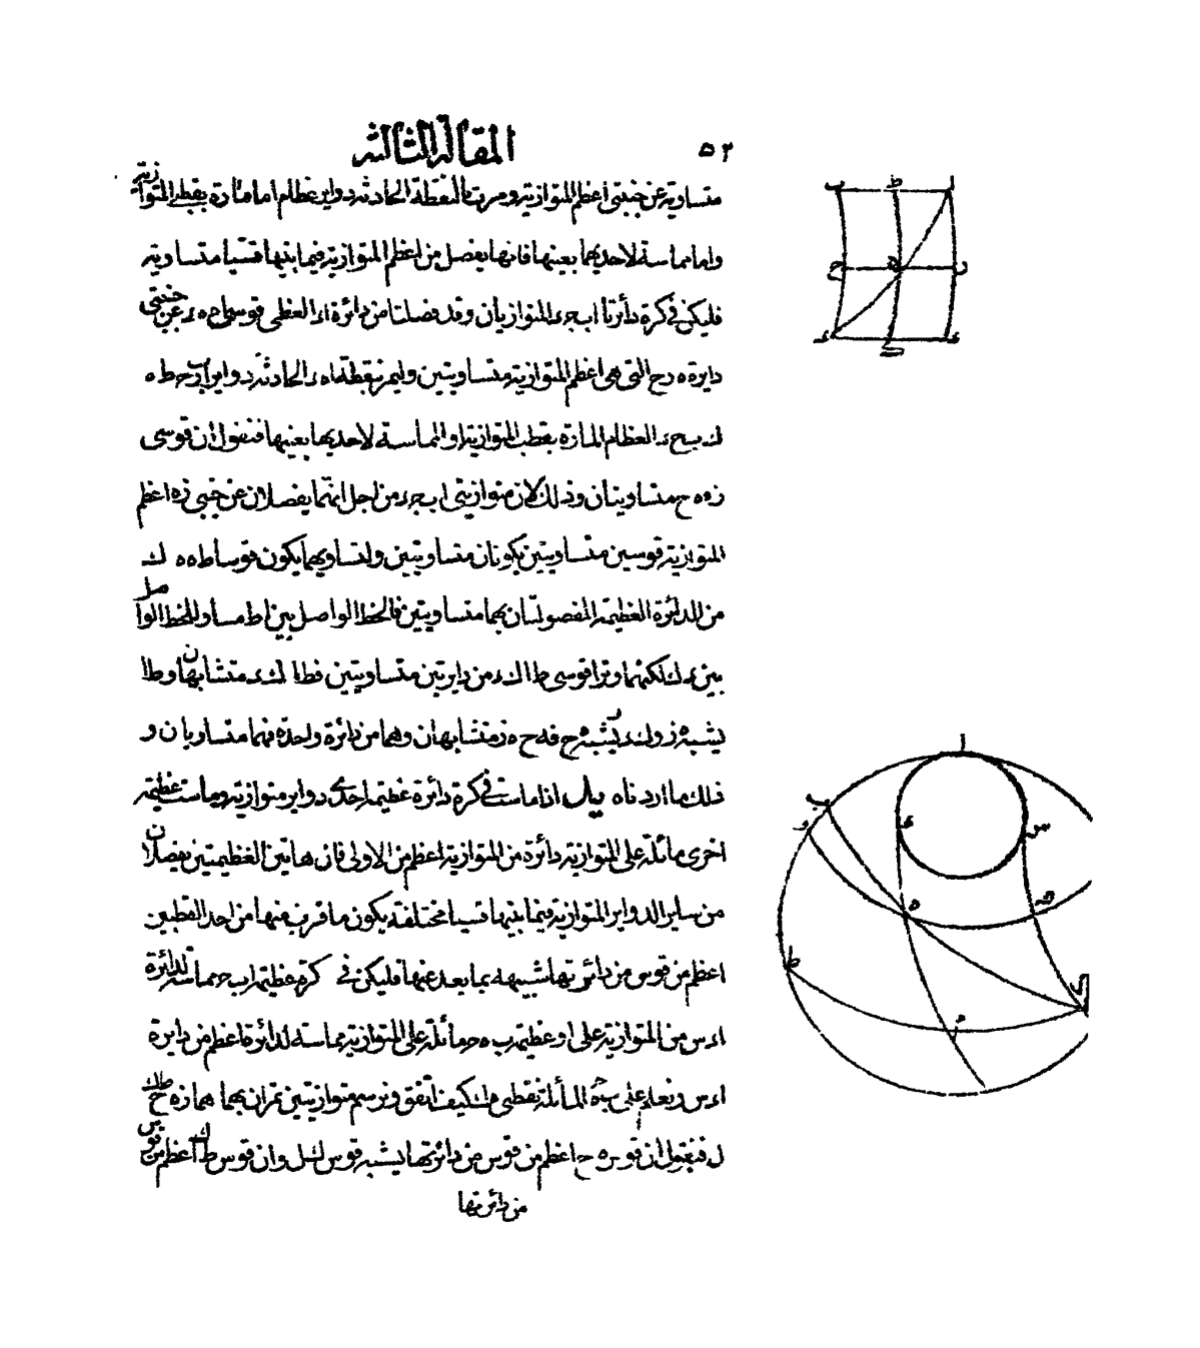 ٥٢
المقالة الثالثة
متساوية عن جنبتى اعظم المتوازية ومرت بالنقطة الحادثة دواير عظام اما مارة بقطبى المتوازية
واما مماسة لاحديهما بعينها فانها يفصل من اعظم المتوازية فيما بينها قسيا متساوية
فليكن فى كرة دائرتا اب جء المتوازيان وقد فصلتا من دائرة اء العظمى قوسى اه هء عن جنبتى
دايرة ه رح التى هى اعظم المتوازية متساويتين وليمر بنقطة اه ء الحادثة دواير اب حط ه
ك بح ء العظام المارة بقطب المتوازية او المماسة لاحديها بعينها فنقول ان قوسى
زه ه ح متساويتان وذلك لان متوازيتى اب جء من اجل انهما يفصلان عن جنبى زه اعظم
المتوازية قوسين متساويتين يكونان متساويتين ولتساويهما يكون قوسا طه ه ك
من الدائرة العظيمة المفصولتان بهما متساويتين فالخط الواصل بين اط مساو للخط الواصل
بين ء ك لكنهما وترا قوسى طا ك ء من دايرتين متساويتين فطا ك ء متشابهان وطا
يشبه ه ز و ك ء يشبه ه ح فه ح ه ز متشابهان وهما من دائرة واحدة فهما متساويان و
ذلك ما اردناه يا اذا ماست فى كرة دائرة عظيمة احدى دواير متوازية وماست عظيمة
اخرى مائلة على المتوازية دائرة من المتوازية اعظم من الاولى فان هاتين العظيمتين يفصلان
من ساير الدواير المتوازية فيما بينهما قسيا مختلفة يكون ما قرب منها من احد القطبين
اعظم من قوس من دائرتها شبيهة بما بعد عنها فليكن فى كرة عظيمة اب ح مماسة لدائرة
اء س من المتوازية على ا وعظيمة ب ه ح مائلة على المتوازية مماسة لدائرة اعظم من دايرة
اء س ونعلم على ب ه ح المائلة نقطتى ه ك كيف اتفق ونرسم متوازيتين تمران بهما هما زه ح ط ك
ل فنقول ان قوس ه ح اعظم من قوس من دائرتها يشبه قوس ك ل وان قوس ط ك اعظم من قوس
من دائرتها